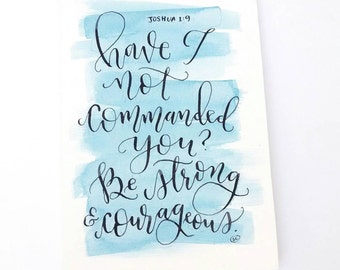 JOSHUA 1:9
have I
not
commanded
you?
Be strong
& courageous.